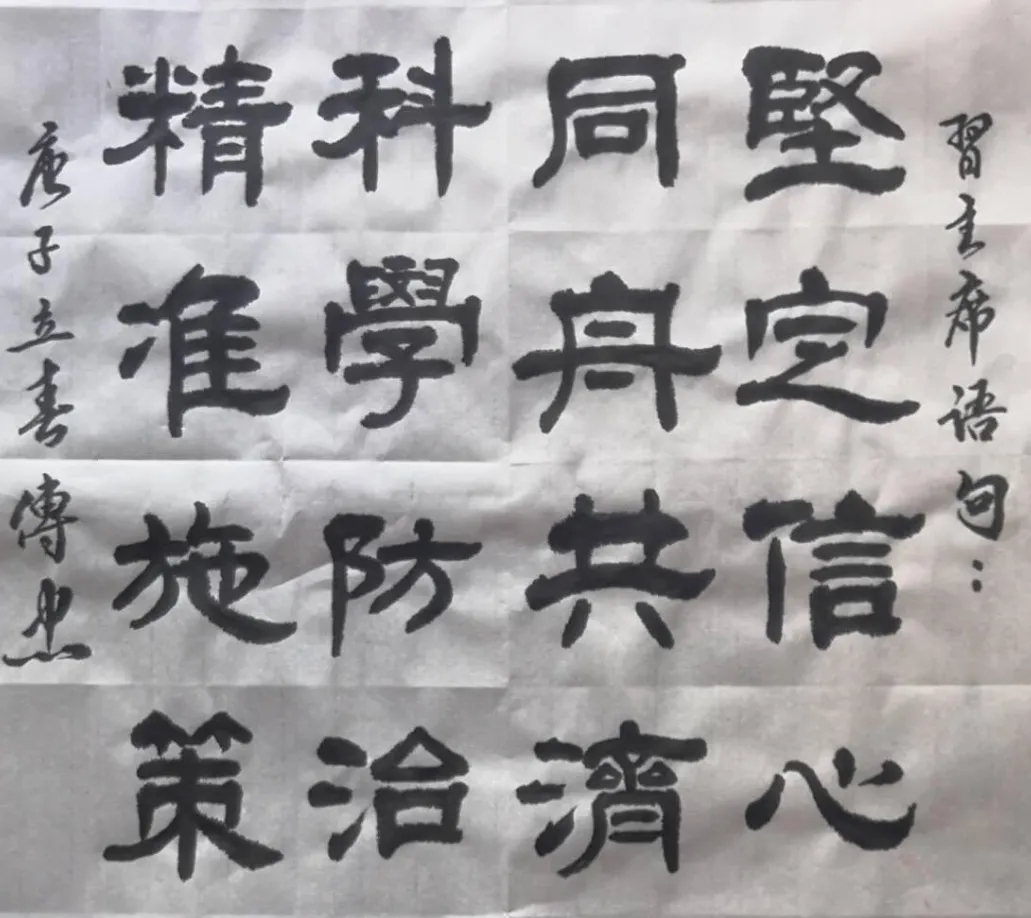 習主席语句：
堅定信心
同舟共濟
科學防治
精准施策
庚子立春傅忠